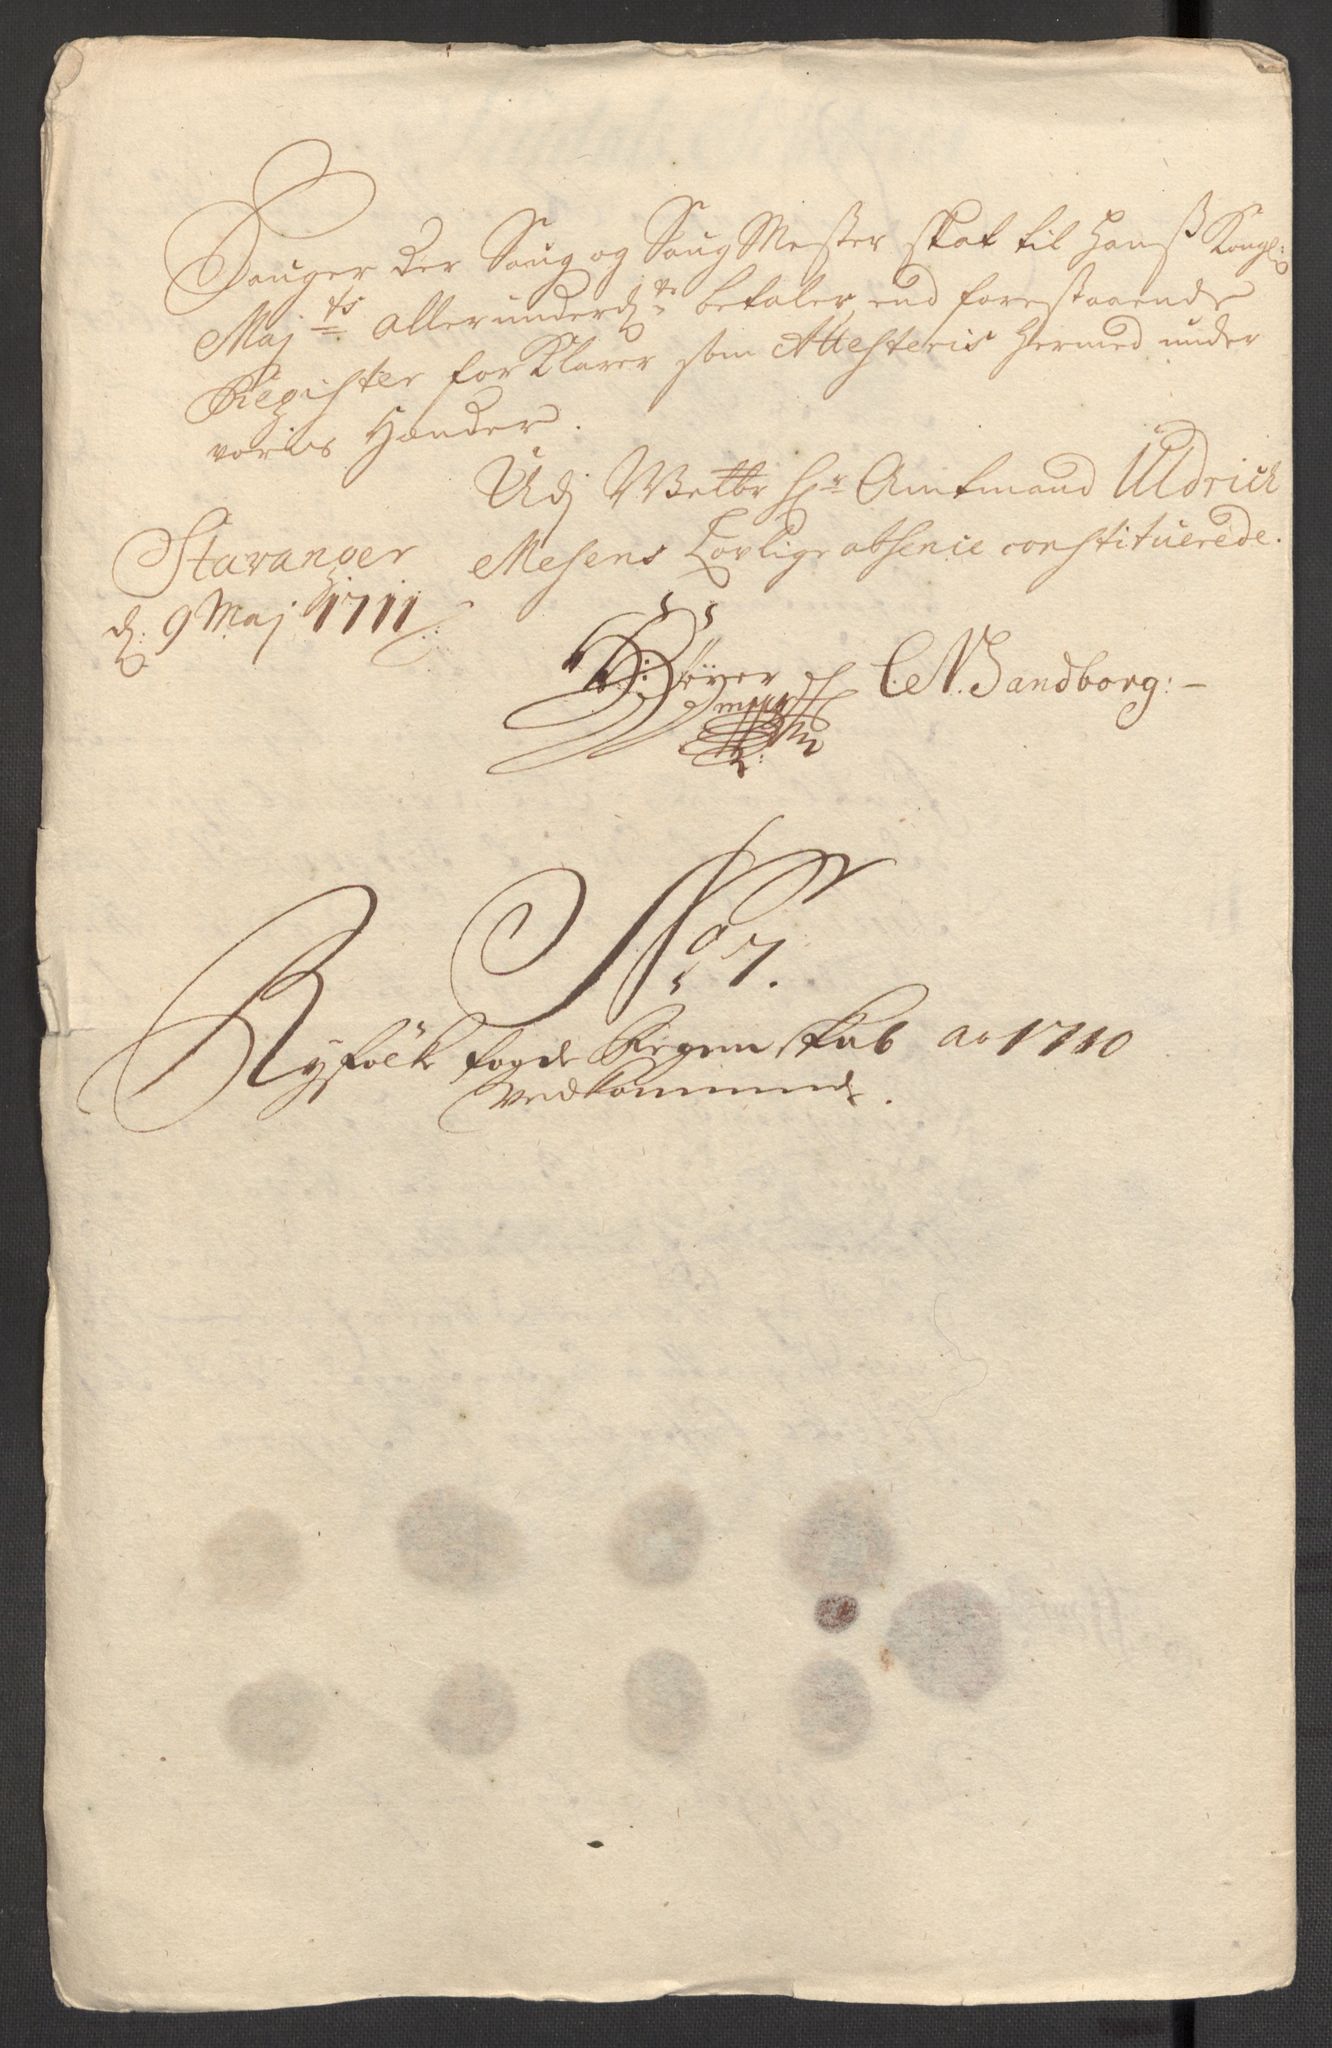 Sauger der Saug og Saug Mester skat til Hans Kongl:
Maj:ts allerunderd:te betaler, end forestaaende
Register forKlarer som Attesteris hermed under
voris Hænder.
Udj Welbr Hr Amtmand Uldrick
Mesens Lovlige absence constituerede.
Stavanger
d: 9 Maj 1711
C. N. Sandborg:
No 7.
Ryfölk fogde Regenskab ao 1710
Vedkommende.